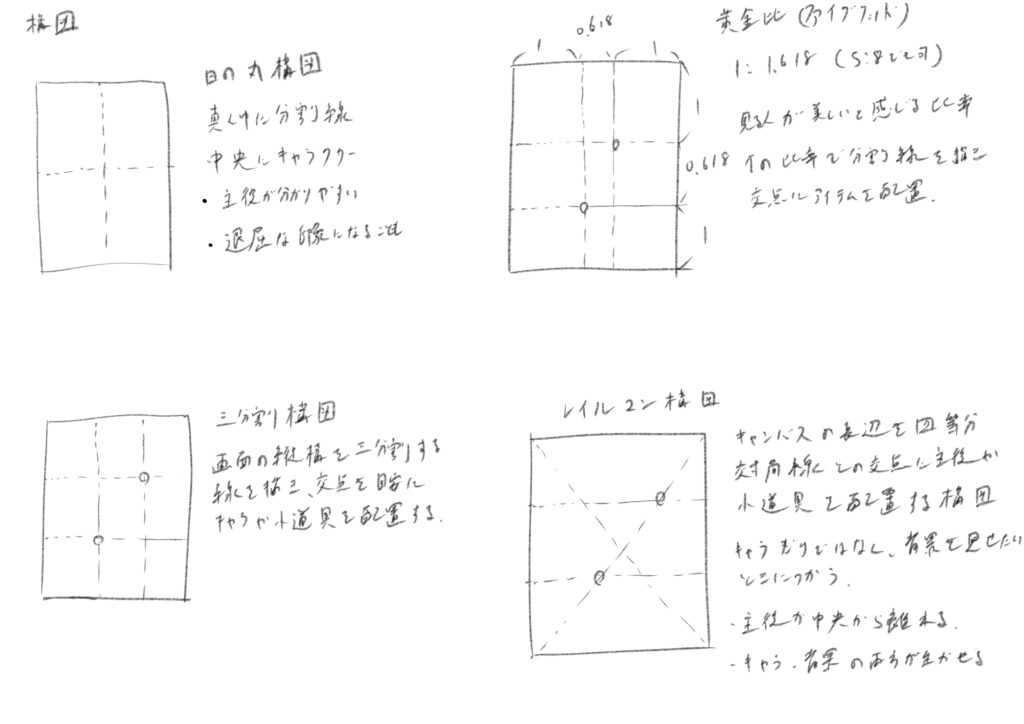 構図
日の丸構図
真ん中に分割線
中央にキャラクター
・主役が分かりやすい
・退屈な印象になることも
0.618
1
1
1
0.618
1
黄金比
1:1.618 (5:8でも可)
見る人が美しいと感じる比率
の比率で分割線を描き
交点にアイテムを配置.
三分割り構図
画面の縦横を三分割りする
線を描き、交点を目安に
キャラや小道具を配置する.
レイルマン構図
キャンバスの長辺を四等分
対局線との交点に主役や
小道具を配置する構図
キャラだけではなく、背景を見せたい
ときにつかう.
・主役が中央から離れる.
・キャラ、背景の両方が生かせる